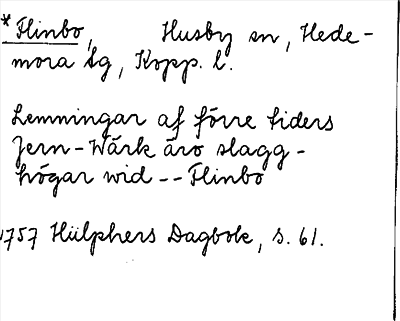 *Flinbo, Husby sn, Hede-
mora tg, Kopp. l.
Lemningar af förre tiders
Jern-Wärk äro slagg-
högar wid -- Flinbo
1757 Hülphers Dagbok, s. 61.